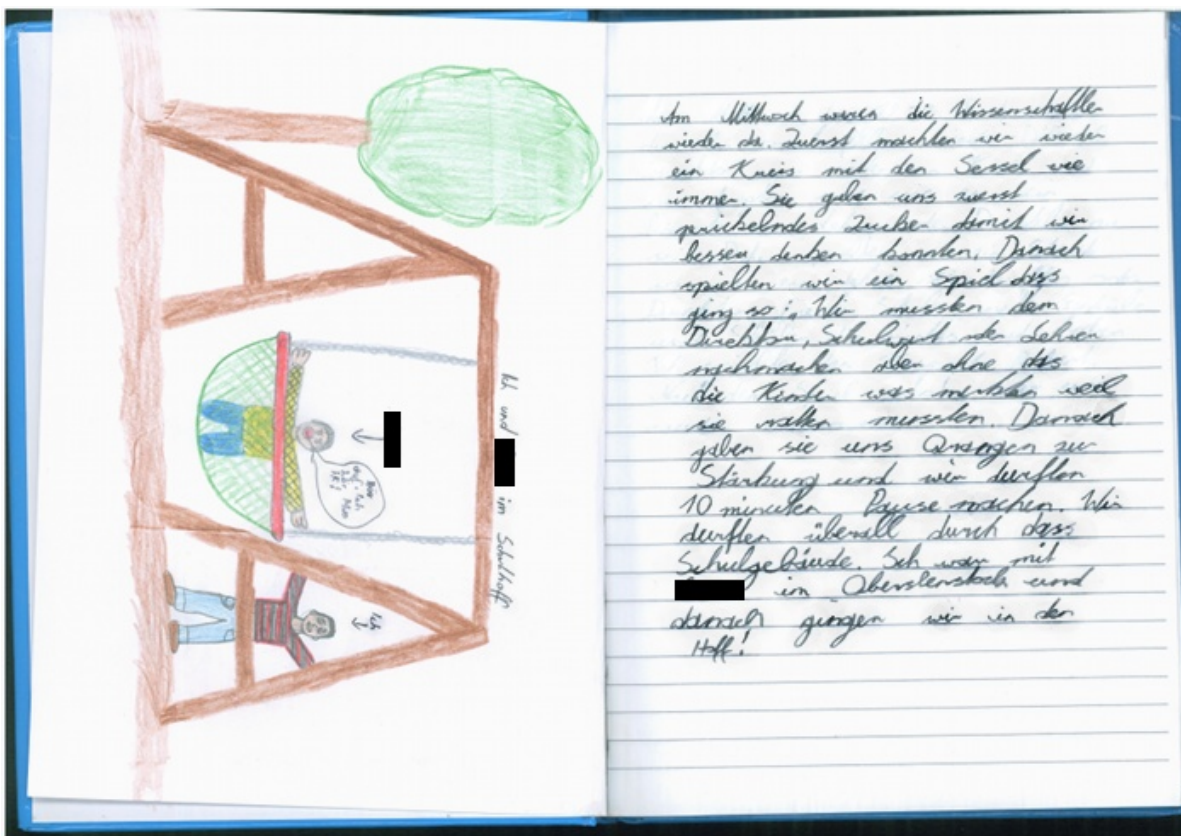 Ich und im Schulhoff
Ich
Am Mittwoch waren die Wissenschaftler
wieder da. Zuerst machten wir wieder
ein Kreis mit den Sessel wie
immer. Sie gaben uns zuerst
prickelndes Zucker damit wir
besser denken konnten. Danach
spielten wir ein Spiel dass
ging so: Wir mussten dem
Direktor, Schulwart oder Lehrer
nachmachen aber ohne das
die Kinder was merkten weil
sie raten mussten. Danach
gaben sie uns Orangen zur
Stärkung und wir durften
10 minuten Pause machen. Wir
durften überall durch dass
Schulgebäude. Ich war mit
im Oberstenstock und
danach gingen wir in den
Hoff!